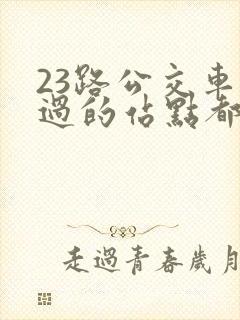 23路公交車
過的佔點都
走過青春歲月